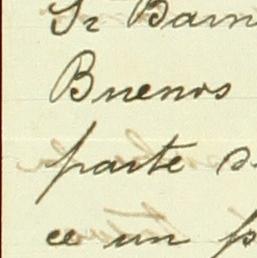 Sr Bam
Buenos
parte
ce un p